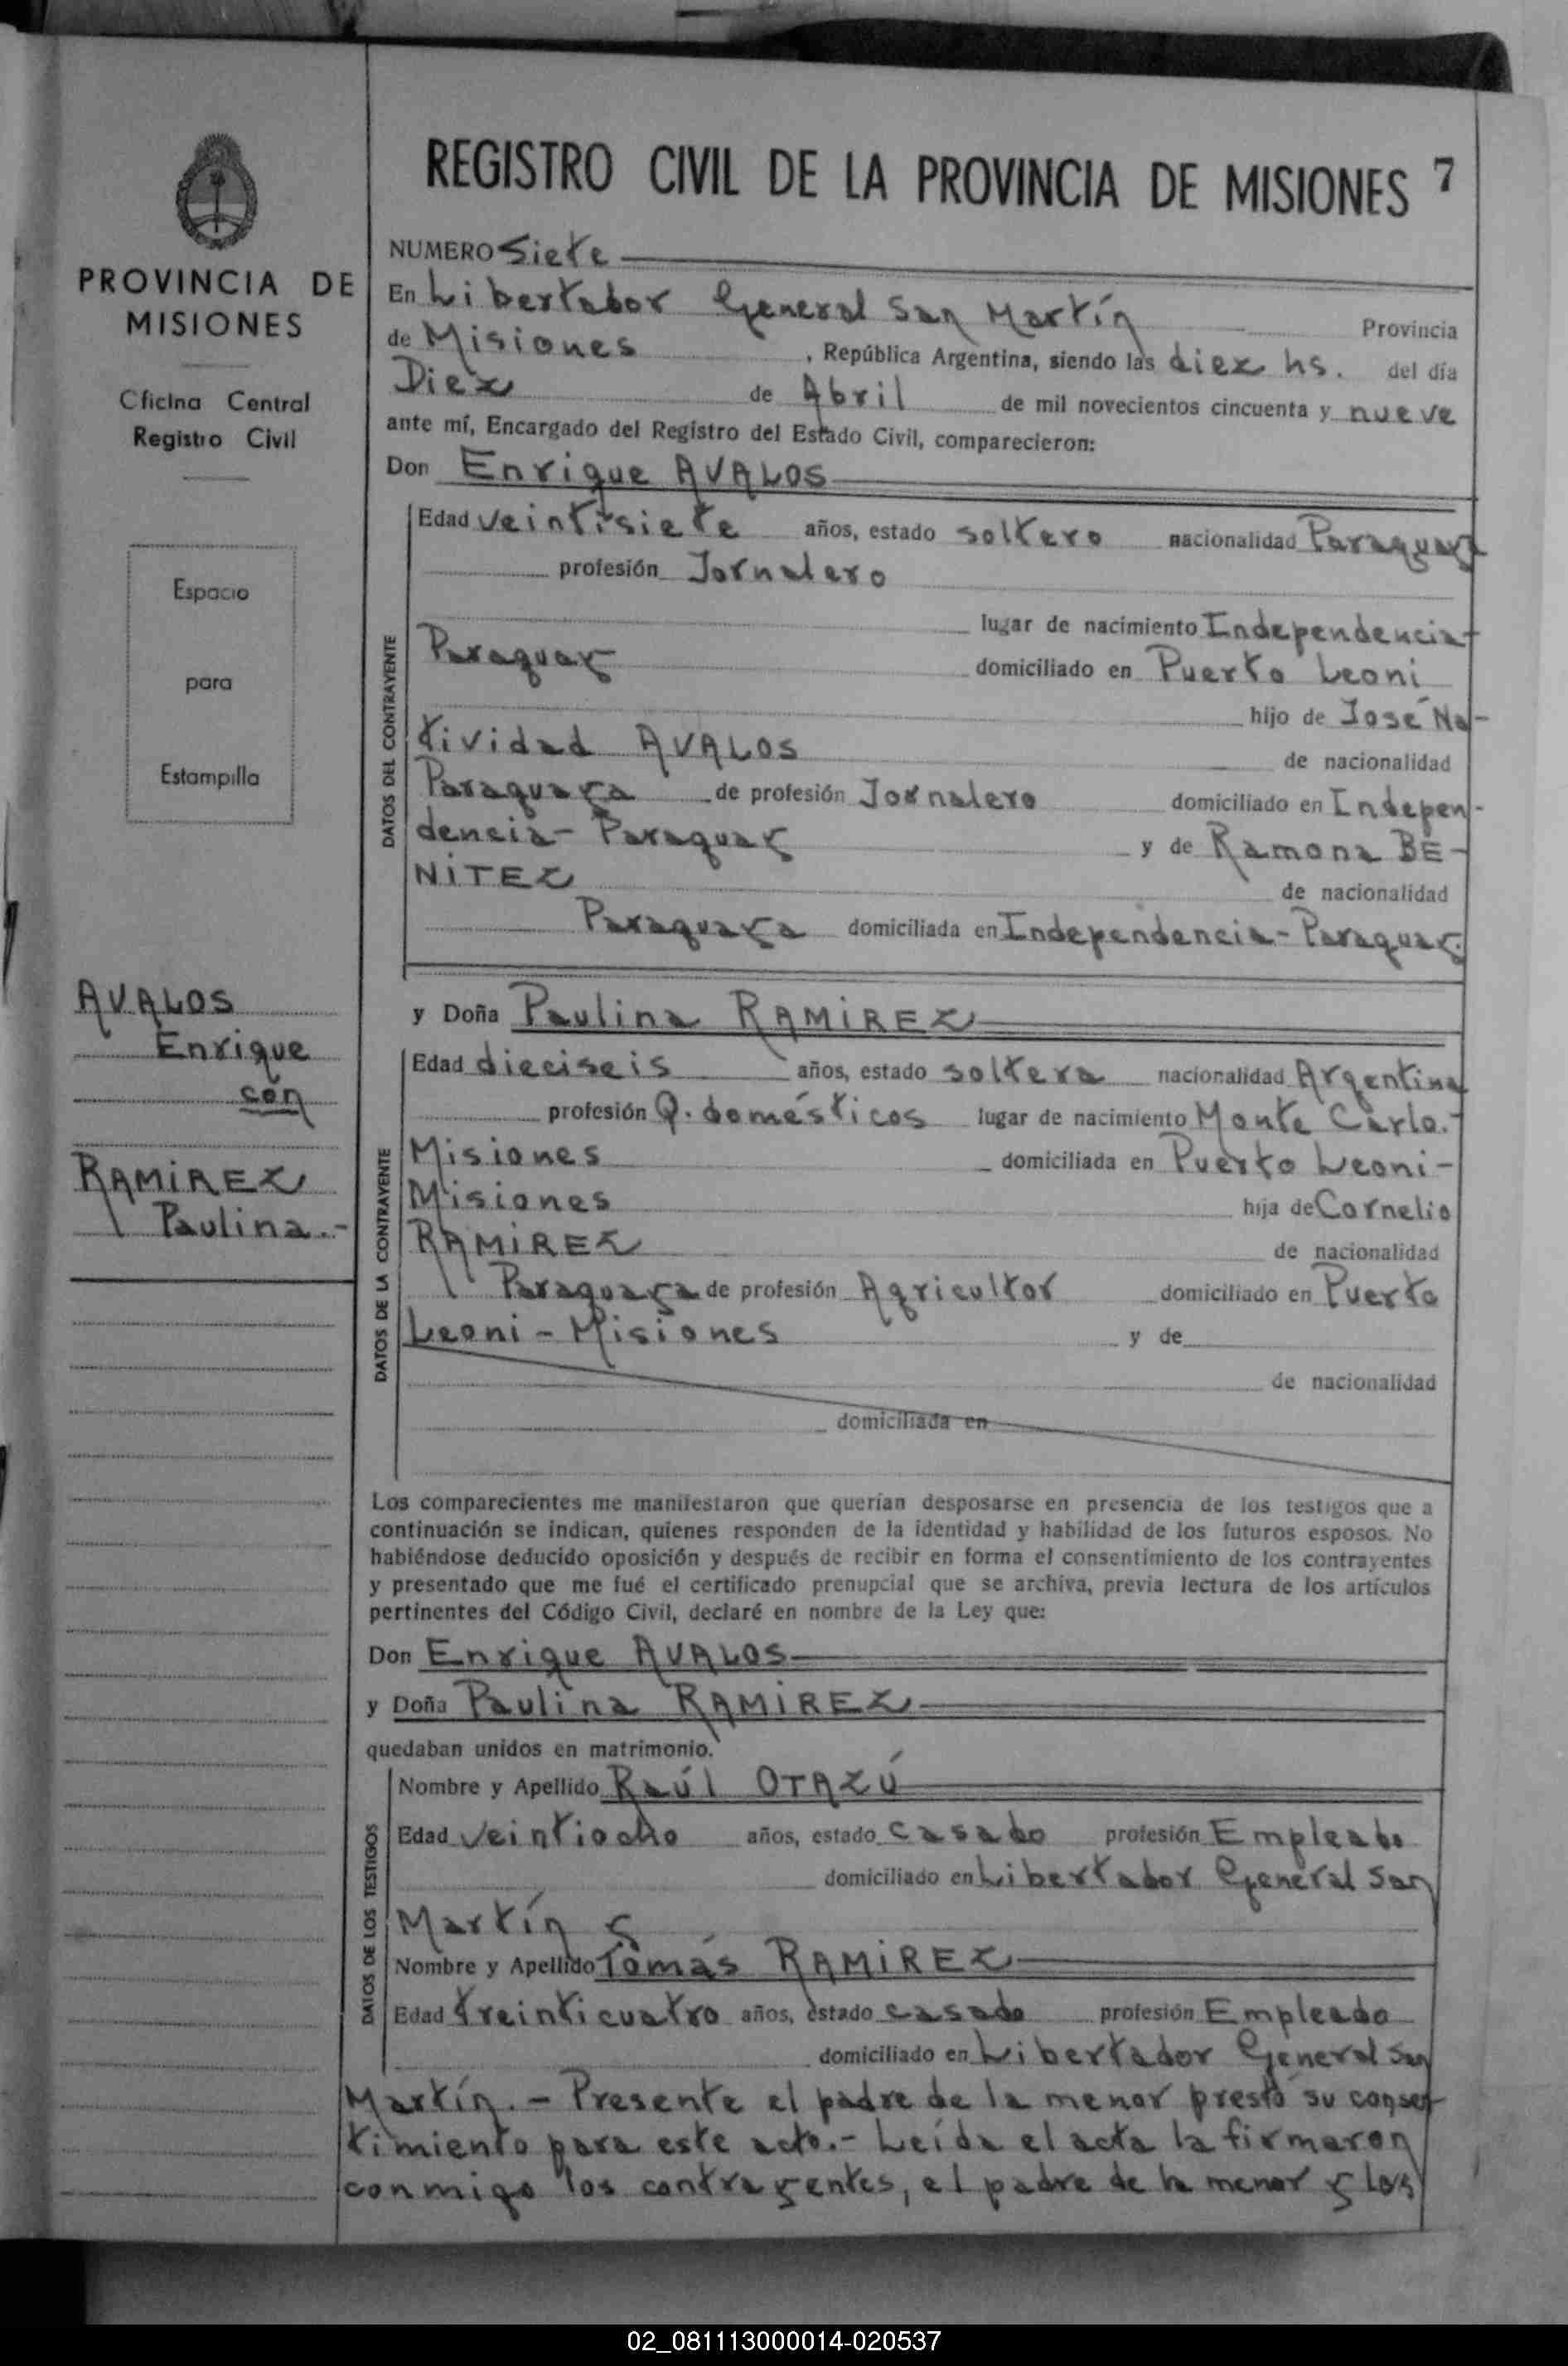 PROVINCIA DE
MISIONES
Oficina Central
Registro Civil
Espacio
para
Estampilla
AVALOS
Enrique
con
RAMIREZ
Paulina.-
REGISTRO CIVIL DE LA PROVINCIA DE MISIONES 7
NUMERO Siete
En Libertador General San Martín Provincia
de Misiones, República Argentina, siendo las diez hs. del día
Diez de Abril de mil novecientos cincuenta y nueve
ante mí, Encargado del Registro del Estado Civil, comparecieron:
Don Enrique AVALOS
DATOS DEL CONTRAYENTE
Edad veintisiete años, estado soltero nacionalidad Paraguaya
profesión Jornalero
lugar de nacimiento Independencia-
Paraguay domiciliado en Puerto Leoni
hijo de José Na-
tividad AVALOS de nacionalidad
Paraguaya de profesión Jornalero domiciliado en Indepen-
dencia- Paraguay y de Ramona BE-
NITEZ de nacionalidad
Paraguaya domiciliada en Independencia- Paraguay.
y Doña Paulina RAMIREZ
DATOS DE LA CONTRAYENTE
Edad dieciseis años, estado soltera nacionalidad Argentina
profesión Q. domésticos lugar de nacimiento Monte Carlo.-
Misiones domiciliada en Puerto Leoni-
Misiones hija de Cornelio
RAMIREZ de nacionalidad
Paraguaya de profesión Agricultor domiciliado en Puerto
Leoni - Misiones y de
de nacionalidad
domiciliada en
Los comparecientes me manifestaron que querían desposarse en presencia de los testigos que a
continuación se indican, quienes responden de la identidad y habilidad de los futuros esposos. No
habiéndose deducido oposición y después de recibir en forma el consentimiento de los contrayentes
y presentado que me fué el certificado prenupcial que se archiva, previa lectura de los artículos
pertinentes del Código Civil, declaré en nombre de la Ley que:
Don Enrique AVALOS
y Doña Paulina RAMIREZ
quedaban unidos en matrimonio.
DATOS DE LOS TESTIGOS
Nombre y Apellido Raúl OTAZÚ
Edad veintiocho años, estado casado profesión Empleado
domiciliado en Libertador General San
Martín y
Nombre y Apellido Tomás RAMIREZ
Edad treinticuatro años, estado casado profesión Empleado
domiciliado en Libertador General San
Martín. - Presente el padre de la menor prestó su consen-
timiento para este acto.- Leída el acta la firmaron
conmigo los contrayentes, el padre de la menor y los
02_081113000014-020537